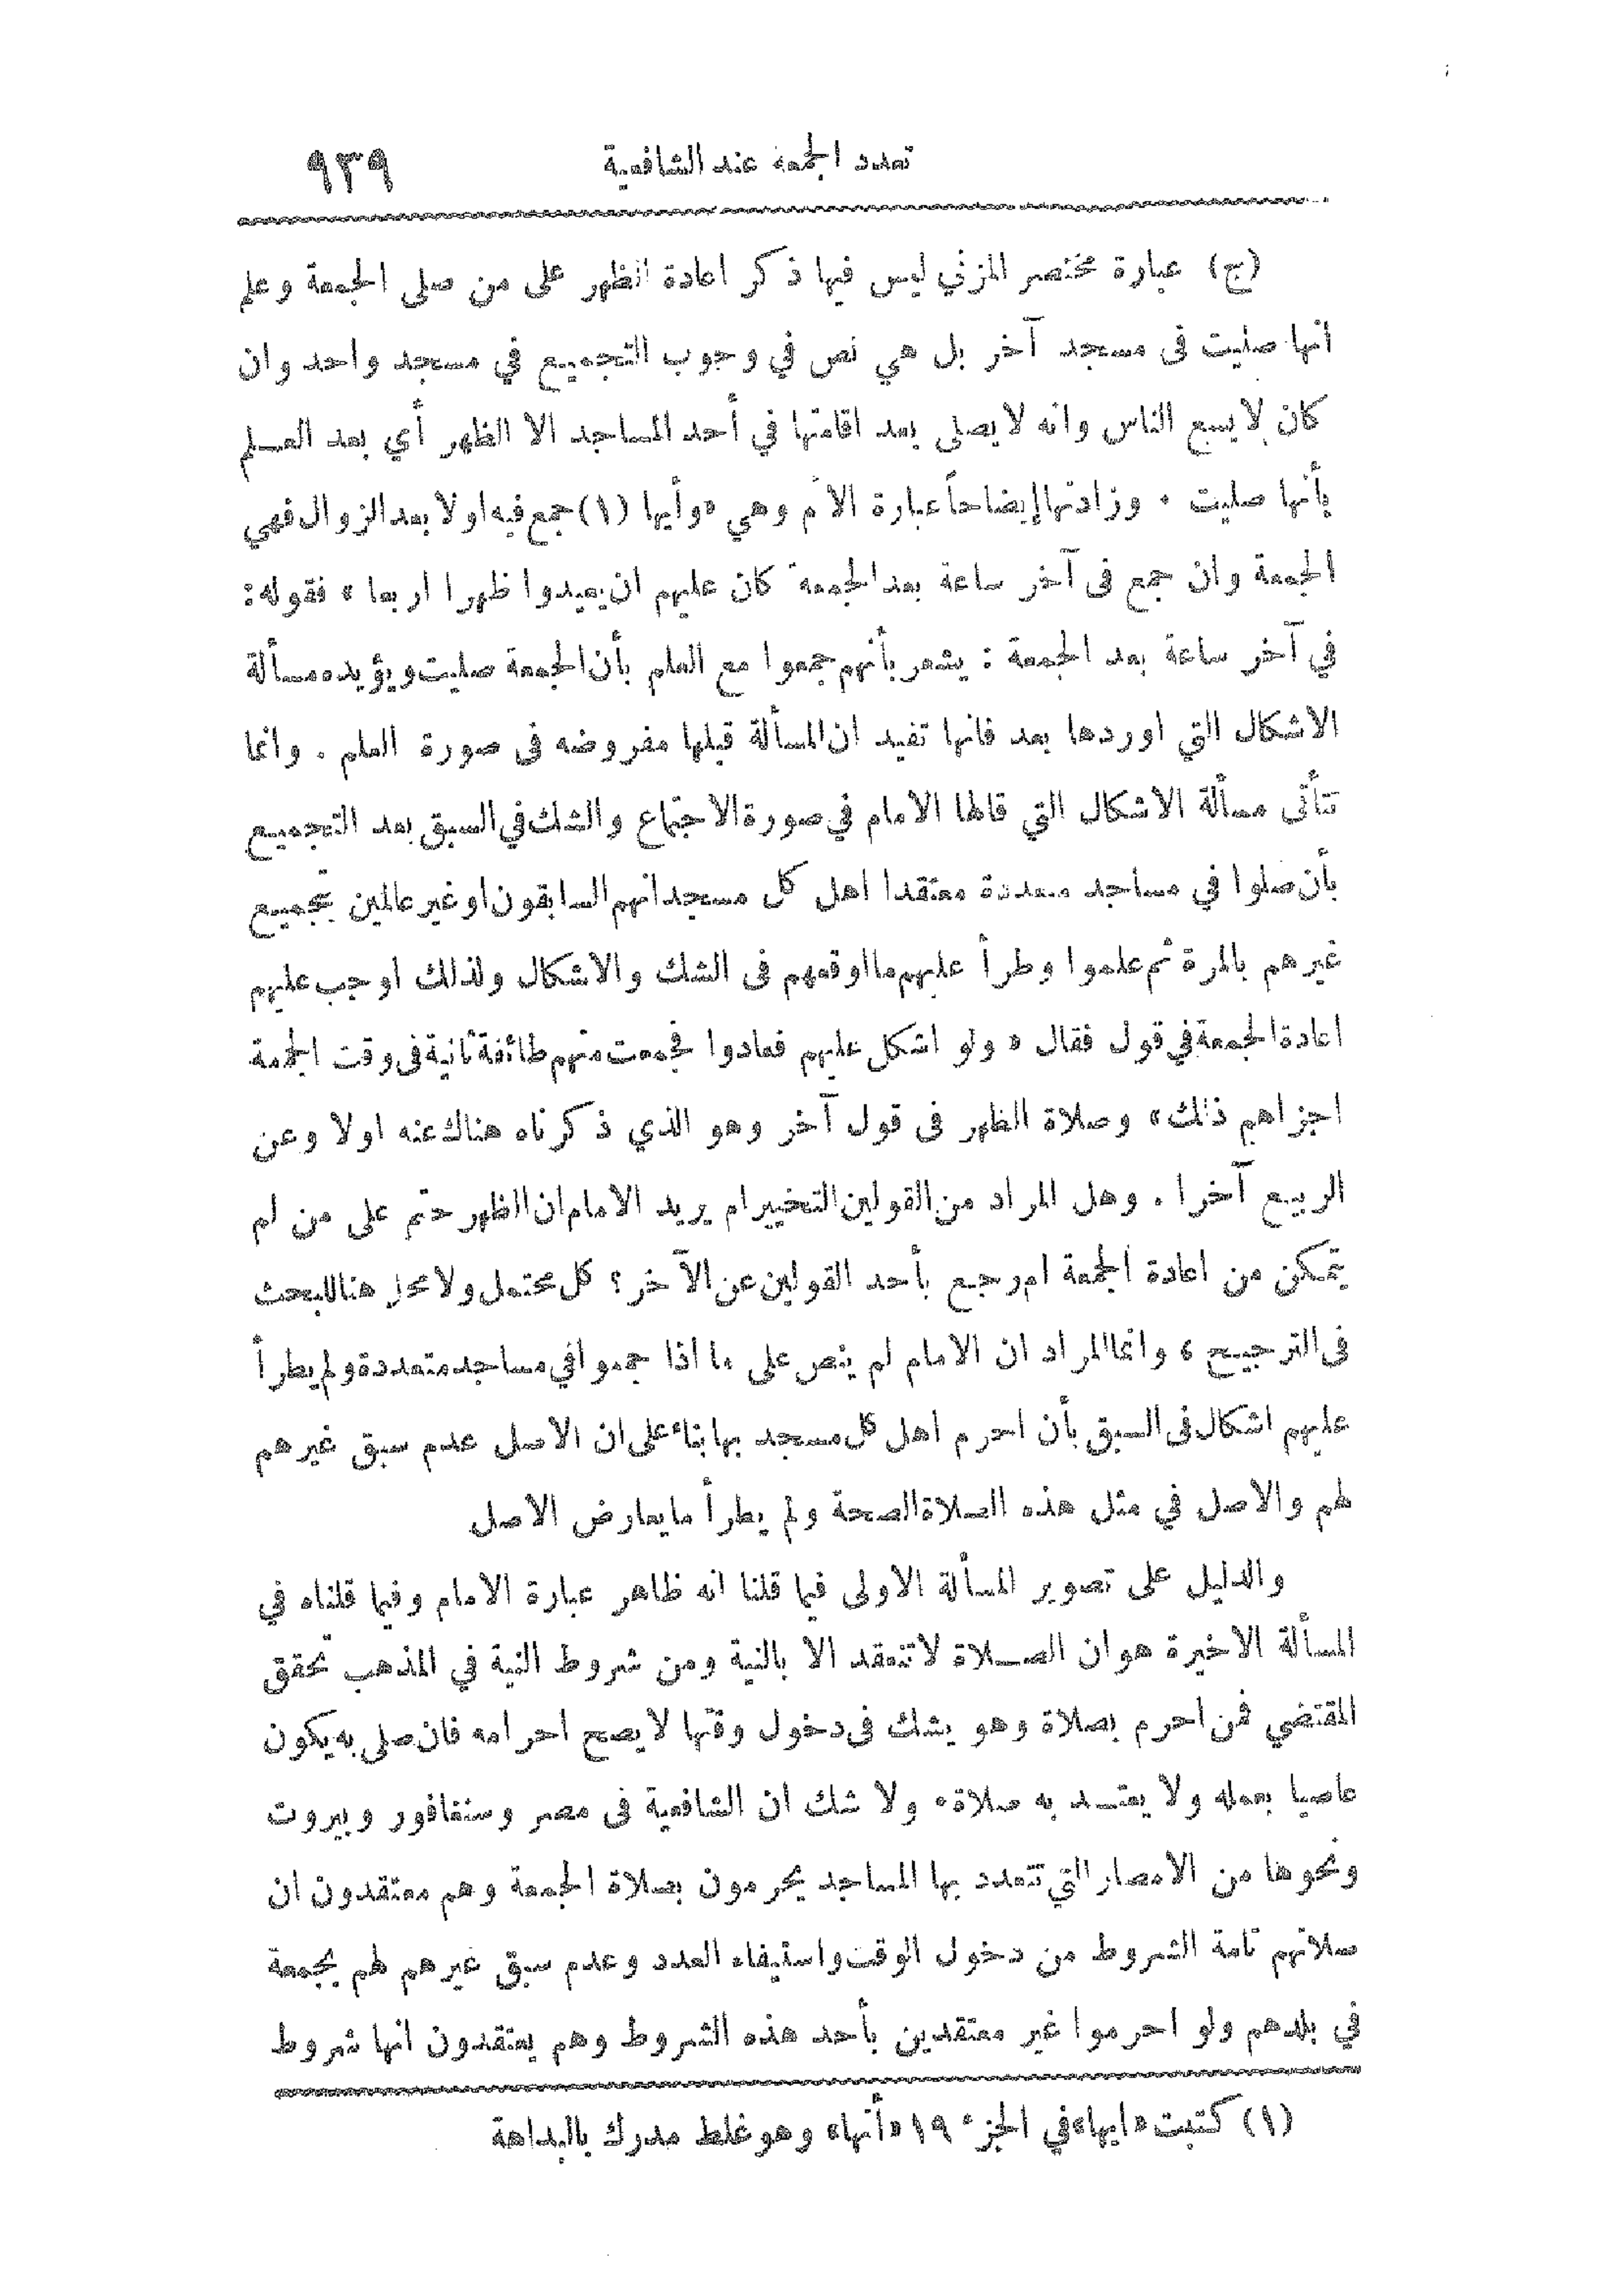 تعدد الجمعة عند الشافعية ٩٣٩
(ج) عبارة مختصر المزني ليس فيها ذكر اعادة الظهر على من صلى الجمعة وعلم
أنها صليت فى مسجد آخر بل هي نص في وجوب التجميع في مسجد واحد وان
كان لايسع الناس وانه لايصلى بعد اقامتها في أحد المساجد الا الظهر أي بعد العلم
بأنها صليت . وزادتها إيضاحاً عبارة الأم وهي «وأيها (١) جمع فيه اولا بعد الزوال فهي
الجمعة وان جمع فى آخر ساعة بعد الجمعة كان عليهم ان يعيدوا ظهرا اربعا » فقوله :
في آخر ساعة بعد الجمعة : يشعر بأنهم جمعوا مع العلم بأن الجمعة صليت ويؤيده مسألة
الاشكال التي اوردها بعد فانها تفيد ان المسألة قبلها مفروضه فى صورة العلم . وانما
تتأتى مسألة الاشكال التي قالها الامام في صورة الاجتماع والشك في السبق بعد التجميع
بأن صلوا في مساجد متعددة معتقدا اهل كل مسجد انهم السابقون او غير عالمين بتجميع
غيرهم بالمرة ثم علموا وطرأ عليهم ما اوقعهم فى الشك والاشكال ولذلك اوجب عليهم
اعادة الجمعة في قول فقال « ولو اشكل عليهم فعادوا فجمعت منهم طائفة ثانية فى وقت الجمعة
اجزاهم ذلك » وصلاة الظهر فى قول آخر وهو الذي ذكرناه هناك عنه اولا وعن
الربيع آخرا . وهل المراد من القولين التخيير ام يريد الامام ان الظهر حتم على من لم
يتمكن من اعادة الجمعة ام رجع بأحد القولين عن الآخر ؟ كل محتمل ولا محل هنا للبحث
فى الترجيح ، وانما المراد ان الامام لم ينص على ما اذا جمعوا في مساجد متعددة ولم يطرأ
عليهم اشكال فى السبق بأن احرم اهل كل مسجد بها بناء على ان الاصل عدم سبق غيرهم
لهم والاصل في مثل هذه الصلاة الصحة ولم يطرأ ما يعارض الاصل
والدليل على تصوير المسألة الاولى فيما قلنا انه ظاهر عبارة الامام وفيما قلناه في
المسألة الاخيرة هو ان الصلاة لا تنعقد الا بالنية ومن شروط النية في المذهب تحقق
المقتضي فمن احرم بصلاة وهو يشك فى دخول وقتها لا يصح احرامه فان صلى به يكون
عاصيا بعمله ولا يعتد به صلاة . ولا شك ان الشافعية فى مصر وسنغافور وبيروت
ونحوها من الامصار التي تتعدد بها المساجد يحرمون بصلاة الجمعة وهم معتقدون ان
صلاتهم تامة الشروط من دخول الوقت واستيفاء العدد وعدم سبق غيرهم لهم بجمعة
في بلدهم ولو احرموا غير معتقدين بأحد هذه الشروط وهم يعتقدون انها شروط
(١) كتبت «ايها» في الجزء ١٩ «أنها» وهو غلط مدرك بالبداهة